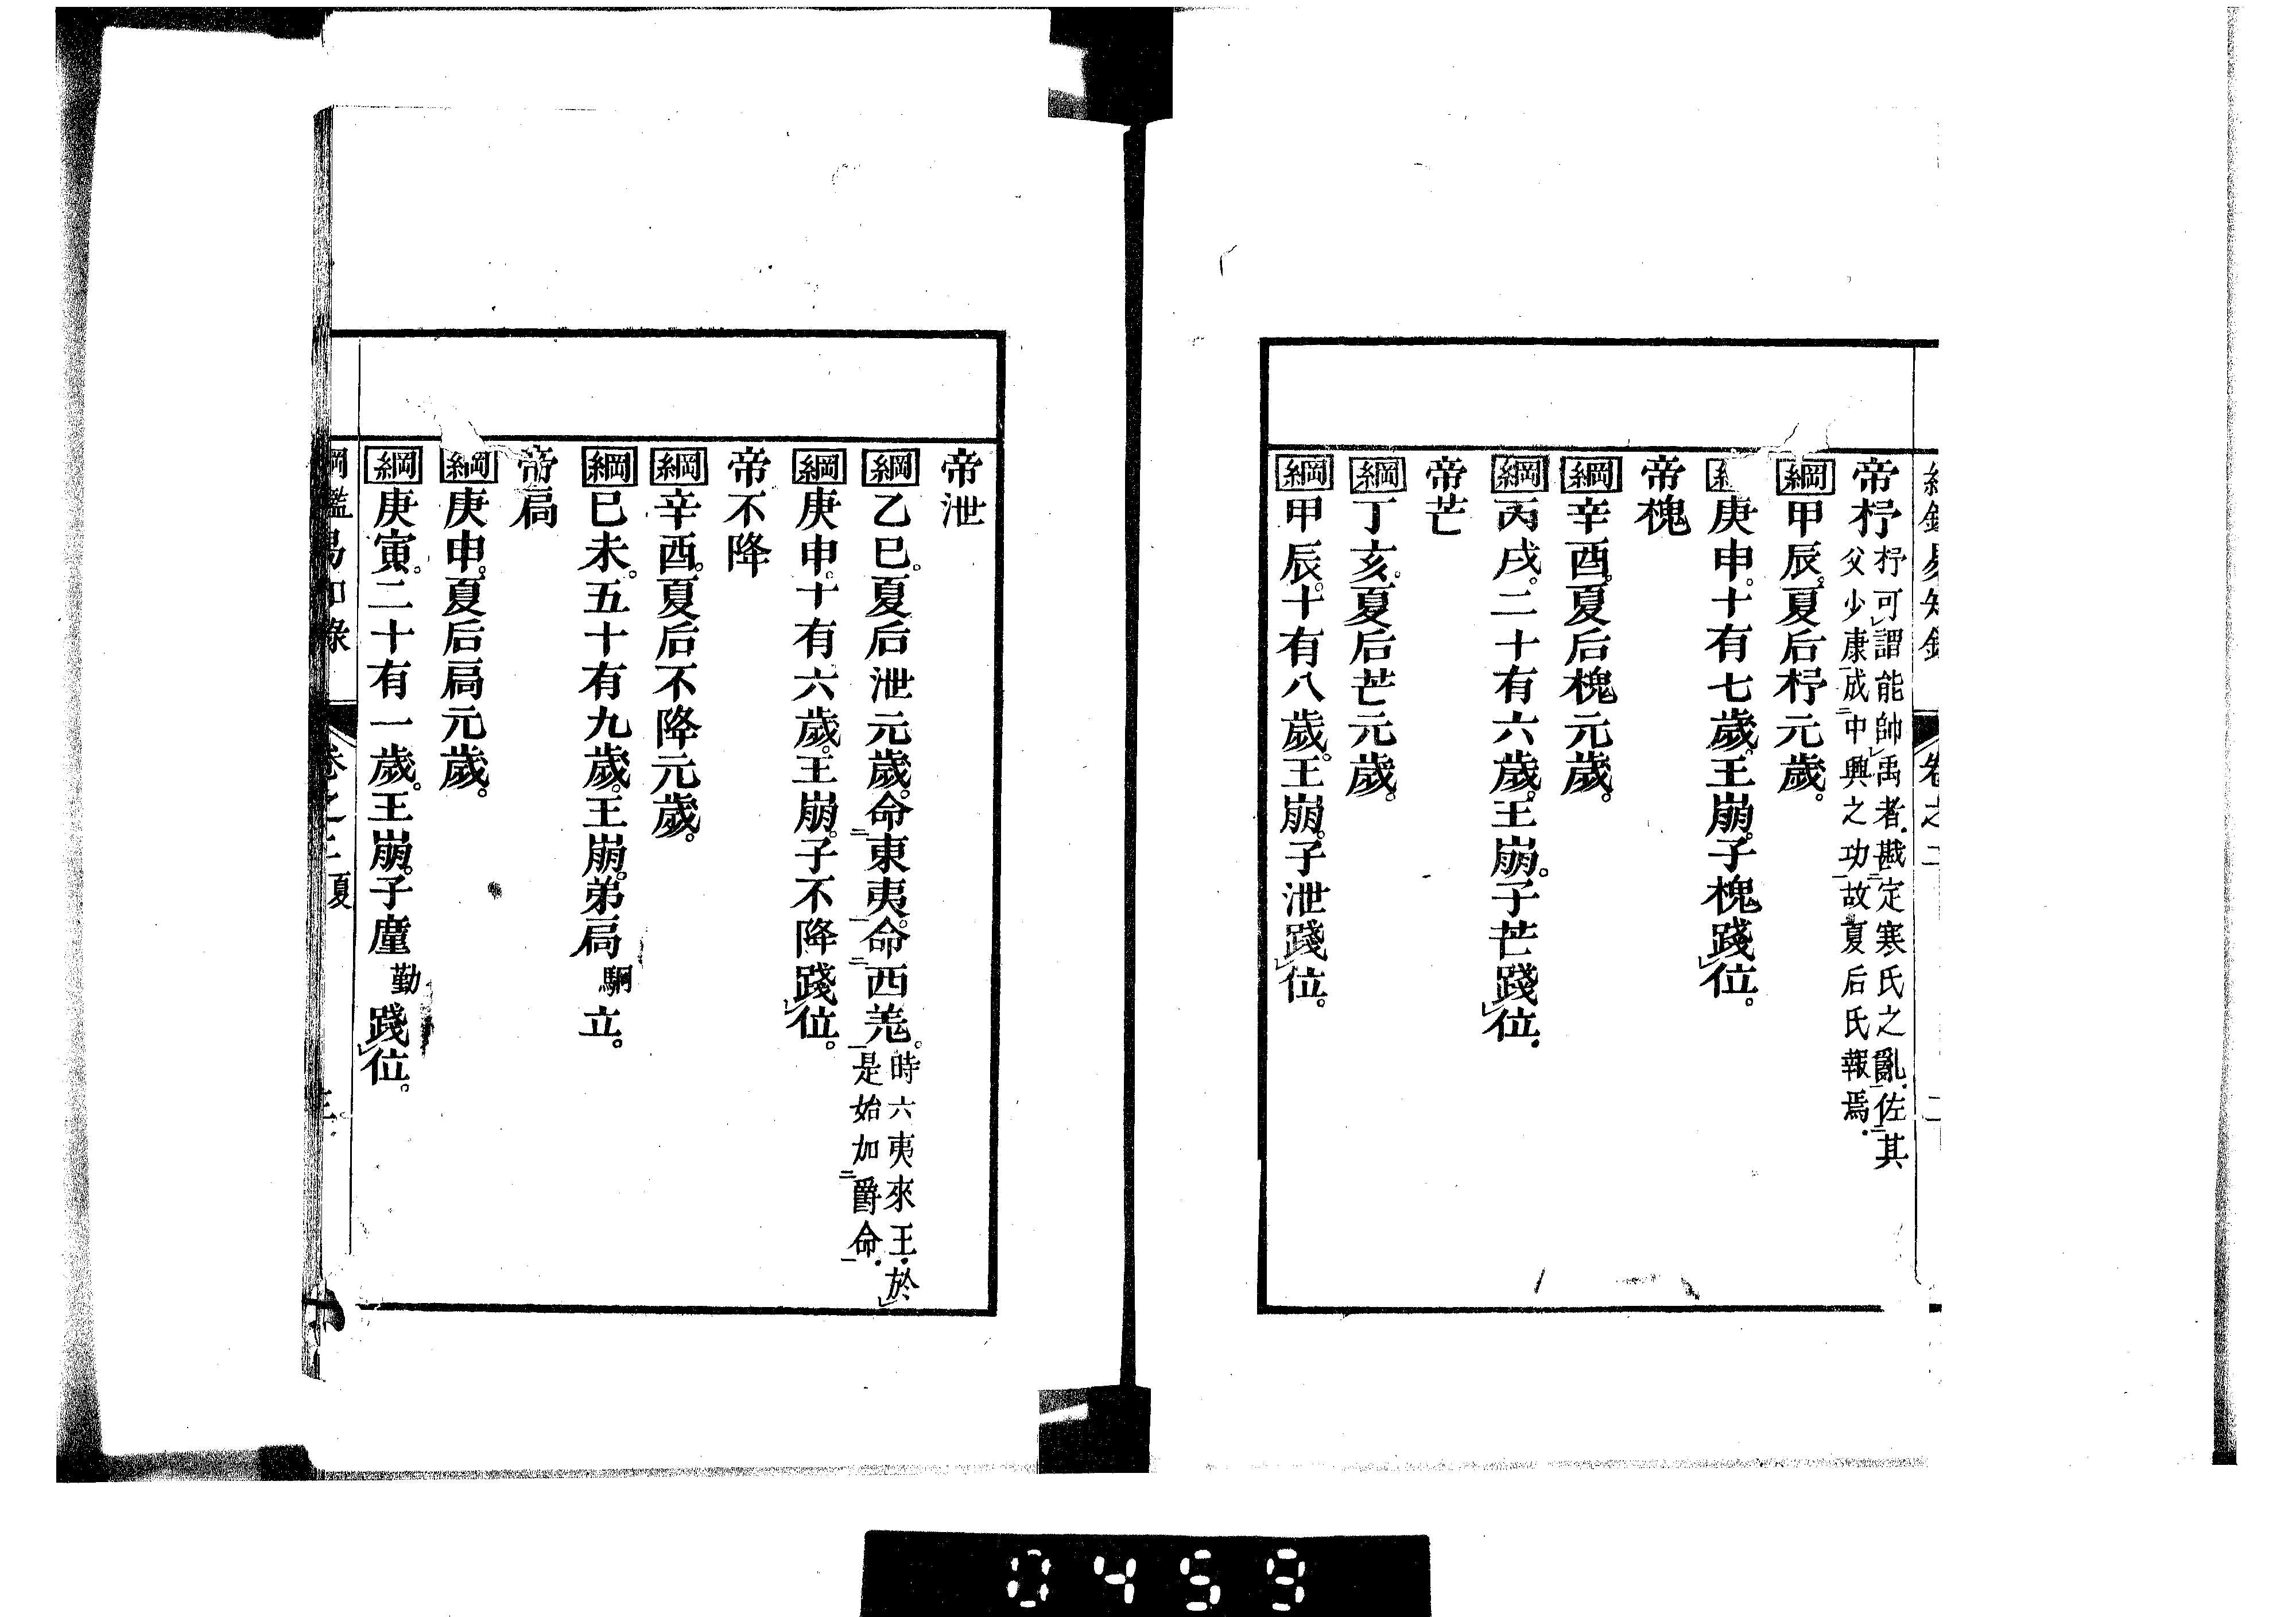 帝杼 杼可謂能帥禹者．戡定寒氏之亂．佐其
父少康成中興之功故夏后氏報焉．
綱甲辰。夏后杼元歲。
庚申。十有七歲。王崩。子槐踐位。
帝槐
綱辛酉。夏后槐元歲。
綱丙戌。二十有六歲。王崩。子芒踐位．
帝芒
綱丁亥。夏后芒元歲。
綱甲辰。十有八歲。王崩。子泄踐位。
帝泄
綱乙巳。夏后泄元歲。命東夷。命西羗。時六夷來王．於
是始加爵命．
綱庚申。十有六歲。王崩。子不降踐位。
帝不降
綱辛酉。夏后不降元歲。
綱巳未。五十有九歲。王崩。弟扃駉立。
帝扃
綱庚申。夏后扃元歲。
綱庚寅。二十有一歲。王崩。子廑勤踐位。
夏
0459